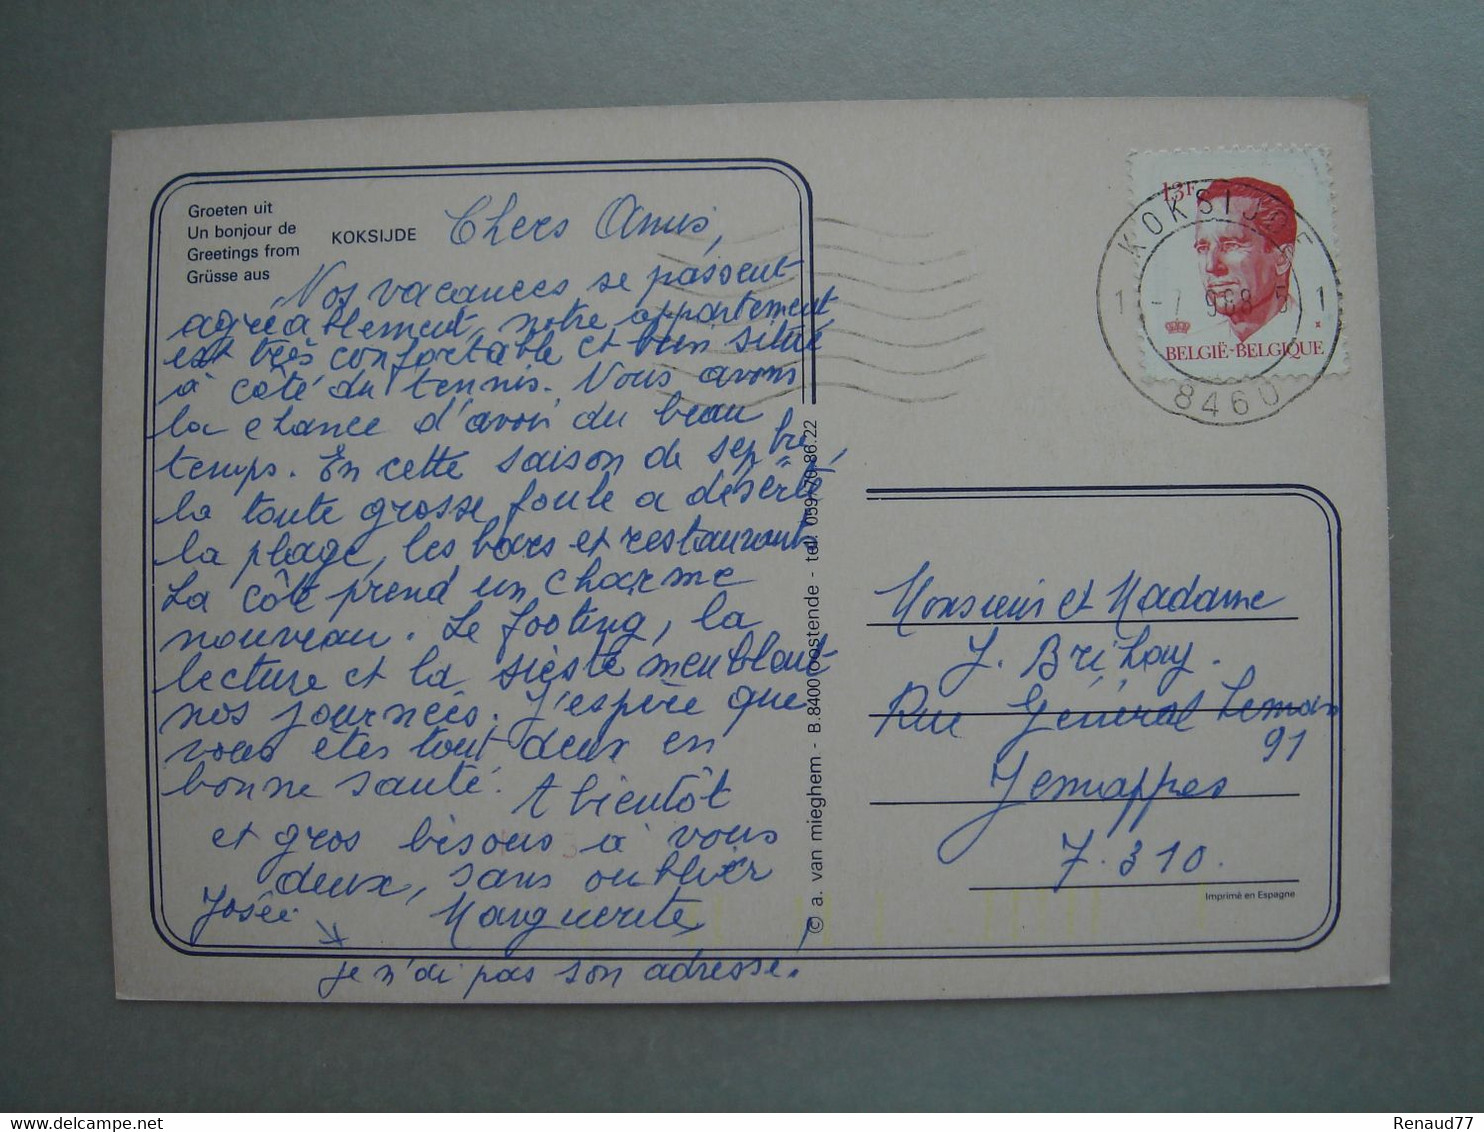 Groeten uit
Un bonjour de
Greetings from
Grüsse aus
KOKSIJDE
Chers Amis,
Nos vacances se passent
agréablement, notre appartement
est très confortable et bien situé
à côté du tennis. Nous avons
la chance d'avoir du beau
temps. En cette saison de sepbre,
la toute grosse foule a déserté
la plage, les bars et restaurants
La côte prend un charme
nouveau. Le footing, la
lecture et la sièste meublent
nos journées. J'espère que
vous êtes tout deux en
bonne santé. A bientôt
et gros bisous à vous
deux, sans oublier
Josée Marguerite
je n'ai pas son adresse.
© a. van mieghem - B.8400 oostende - tel. 059/70.86.22
13F
BELGIË-BELGIQUE
KOKSIJDE
1 -7 988 5 1
8460
Monsieur et Madame
J. Brihay.
Rue Général Leman
91
Jemappes
7.310.
Imprimé en Espagne
Renaud77